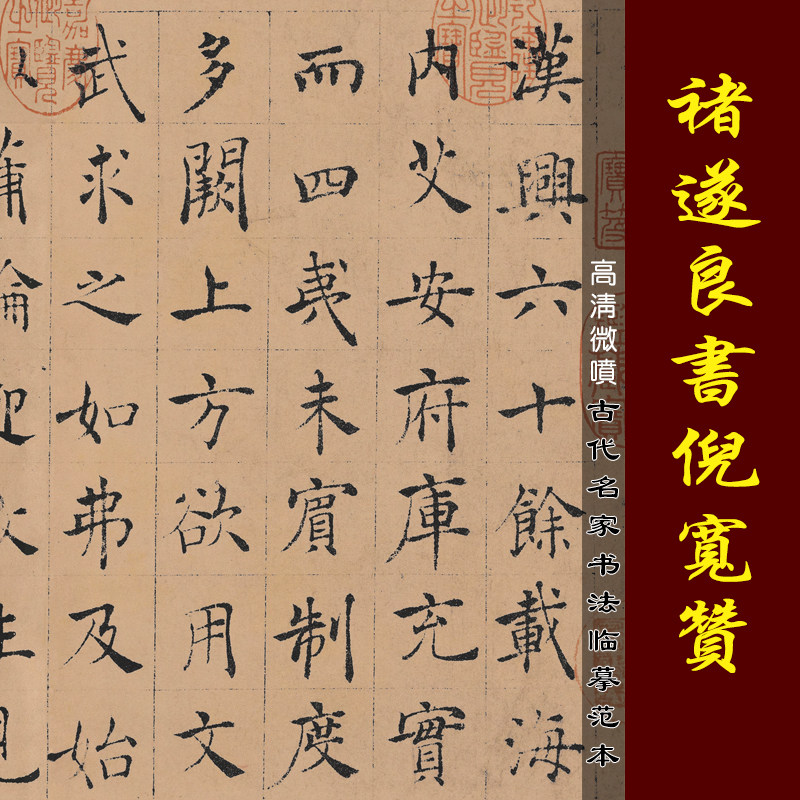 褚遂良書倪寬贊
高清微噴古代名家书法临摹范本
漢興六十餘載海
内艾安府庫充實
而四夷未賓制度
多闕上方欲用文
武求之如弗及始